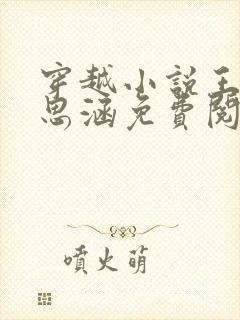 穿越小説王
思涵免費閱
噴火萌